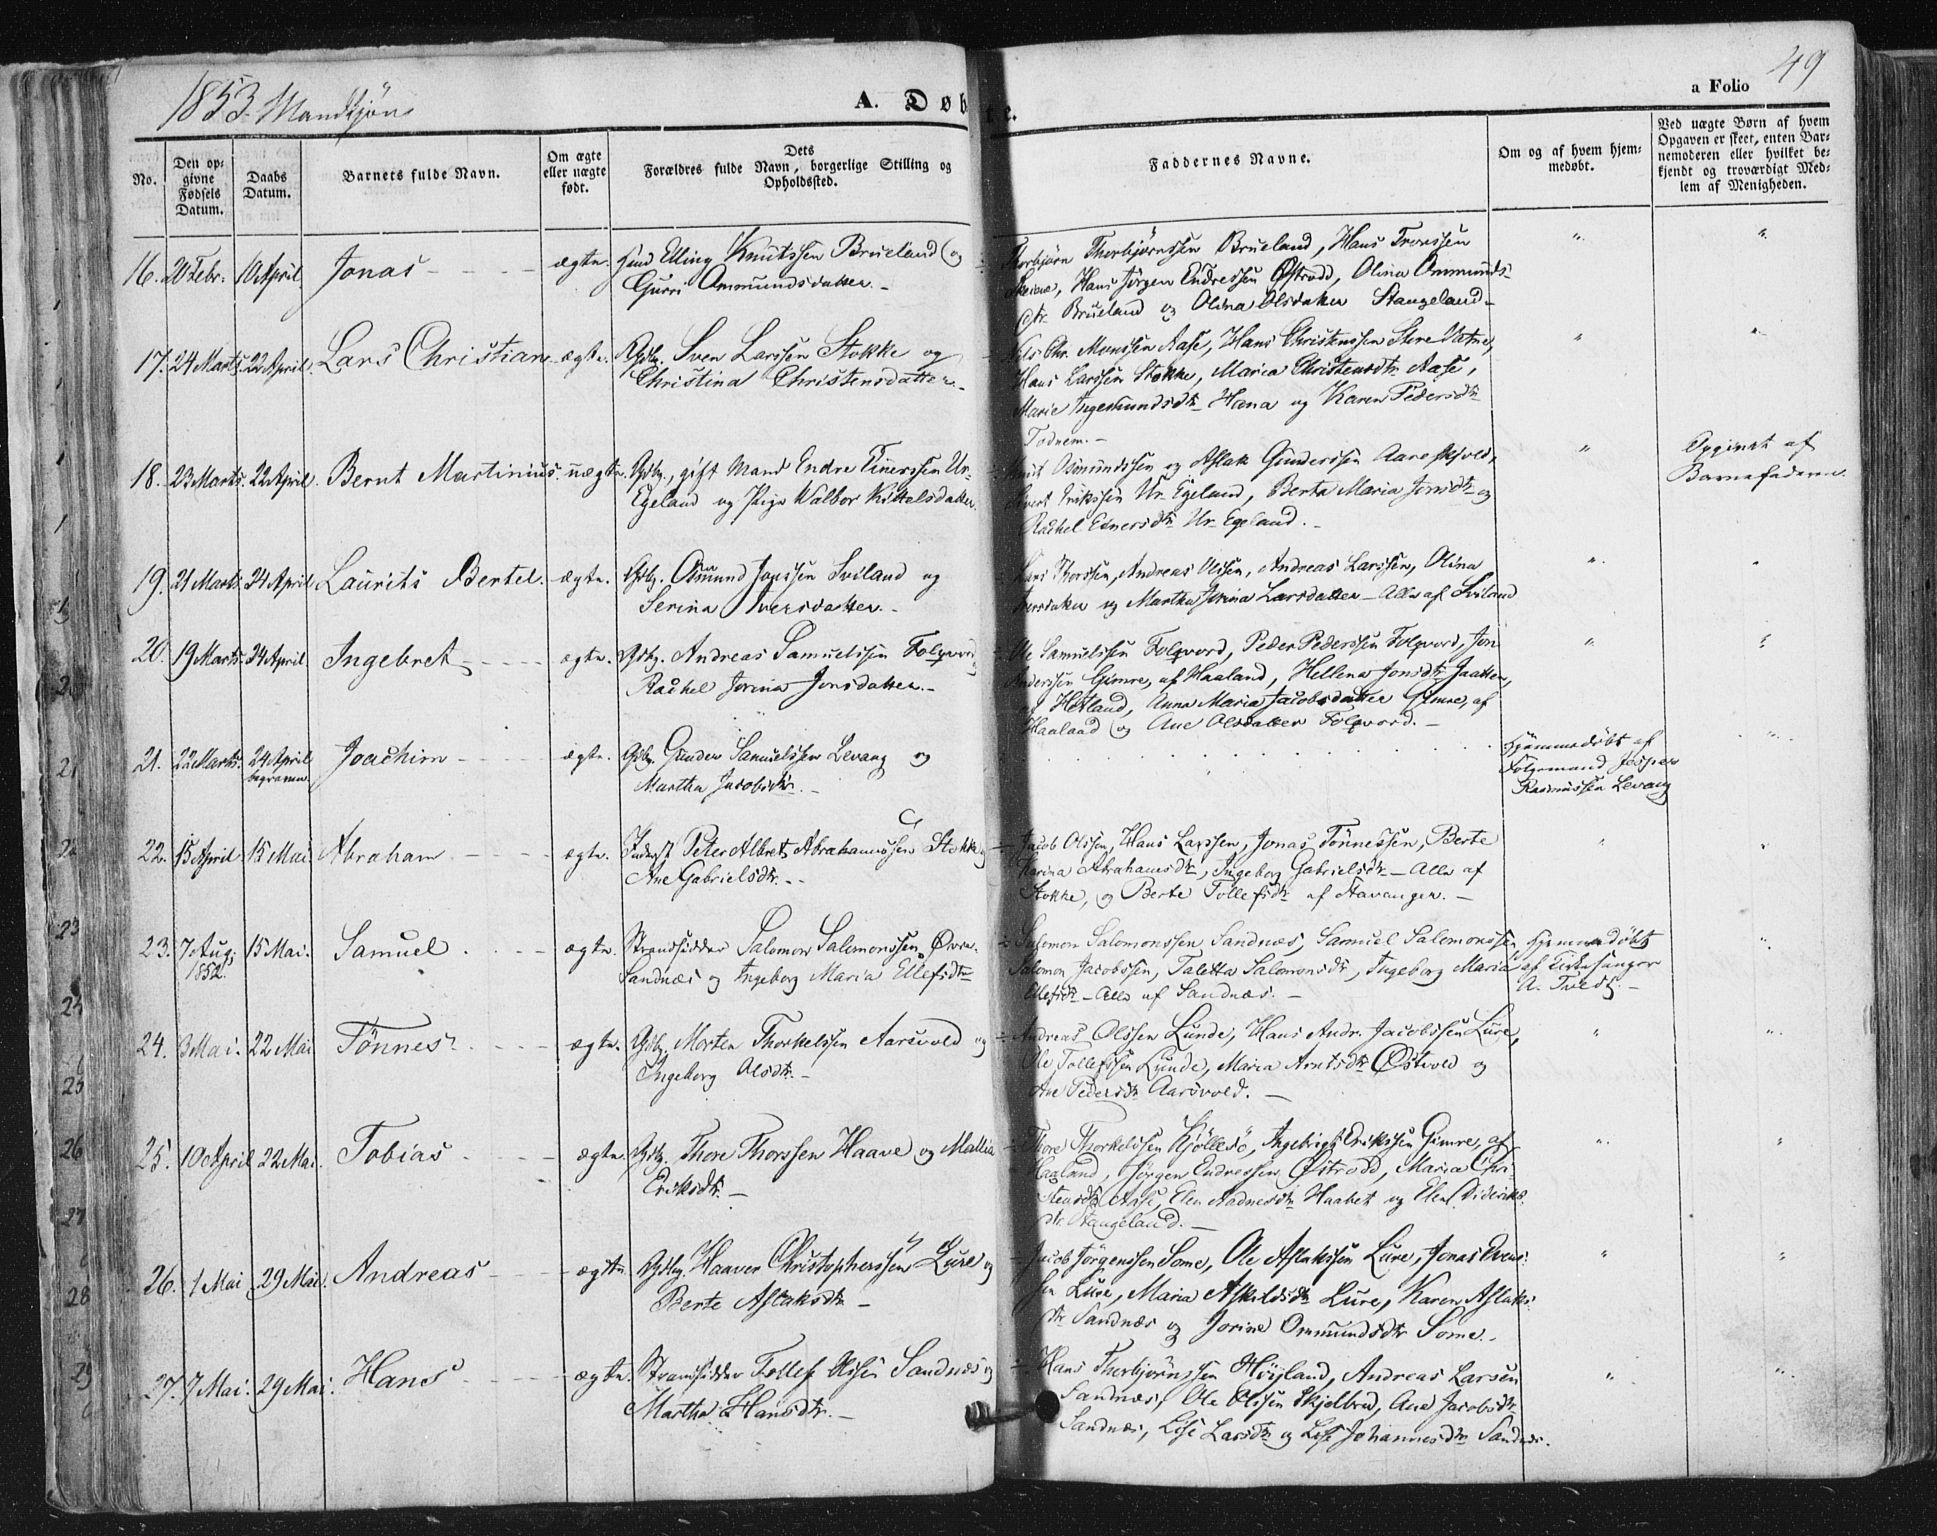 1853. Mandkjøn
A. Døbte.
a Folio 49
No.
Den opgivne Fødsels Datum.
Daabs Datum.
Barnets fulde Navn.
Om ægte eller uægte født.
Dets Forældres fulde Navn, borgerlige Stilling og Opholdssted.
Faddernes Navne.
Om og af hvem hjemmedøbt.
Ved uægte Børn af hvem Opgaven er skeet, enten Barnemoderen eller hvilket bekjendt og troværdigt Medlem af Menigheden.
16. 20 Febr. 10 April Jonas ægte. Elling Knutssen Brueland og
Gurri Ommundsdatter.
Thorbjørn Thorbjørnssen Brueland, Hans Tronssen
Hans Jørgen Endressen Østrodd, Olina Ommunds-
dtr Brueland og Olina Olsdatter Stangeland
17. 24 Marts. 22 April. Lars Christian ægte. Gdbg. Sven Larssen Stokke og
Christina Christensdatter.
Nils Chr. Monssen Aase, Hans Christenssen Store Vatne,
Hans Larssen Stokke, Maria Christensdtr Aase,
Marie Ingemundsdtr Hana og Karen Pedersdtr
Todnem.
18. 23 Marts. 22 April. Bernt Martinius. uægte. Gdbg., gift Mand Endre Einerssen Ur-
Egeland og Pige Walbor Kittelsdatter
Knut Osmundssen og Aslak Gunderssen Aareskjold,
Sivert Erikssen Ur-Egeland, Berta Maria Jonsdtr og
Rachel Einersdtr Ur-Egeland.
Opgivet af
Barnefaderen.
19. 21 Marts. 24 April Laurits Bertel. ægte. Gdbg. Osmund Jonssen Sviland og
Serina Iversdatter.
Lars Thorssen, Andreas Olssen, Andreas Larssen, Olina
Iversdatter og Martha Serina Larsdatter - Alle af Sviland
20. 19 Marts. 24 April Ingebret ægte. Gdbg. Andreas Samuelssen Folqvord og
Rachel Jorina Jonsdatter.
Ole Samuelssen Folqvord, Peder Pederssen Folqvord, Jon
Anderssen Gimre, af Haaland, Hellena Jonsdtr Jaatten,
af Hetland, Anna Maria Jacobsdatter Gimre, af
Haaland og Ane Olsdatter Folqvord.
21. 22 Marts. 24 April begraven Joachim ægte. Gdbg. Gunder Samuelssen Levang og
Martha Jacobsdtr.
Hjemmedøbt af
Følgemand Jesper
Rasmussen Levang
22. 15 April. 15 Mai Abraham ægte. Inderst Peter Albret Abrahamssen Stokke og
Ane Gabrielsdtr.
Jacob Olssen, Hans Larssen, Jonas Tønnessen, Berte
Karina Abrahamsdtr, Ingeborg Gabrielsdtr - Alle af
Stokke, og Berte Tollefsdtr af Stavanger.
23. 7 Aug. 1852. 15 Mai. Samuel ægte. Strandsidder Salomon Salomonssen Øvre-
Sandnæs og Ingeborg Maria Ellefsdtr
Salomon Salomonssen Sandnæs, Samuel Salomonssen
Salomon Jacobssen, Taletta Salomonsdtr, Ingeborg Maria
Ellefsdtr - Alle af Sandnæs.
Hjemmedøbt
af Kirkesanger
A. Tvedt.
24. 3 Mai. 22 Mai Tønnes ægte. Gdbg. Morten Thorkelssen Aarsvold og
Ingeborg Olsdtr.
Andreas Olssen Lunde, Hans Andr. Jacobssen Lure,
Ole Tollefssen Lunde, Maria Arntsdtr Østvold og
Ane Pedersdtr Aarsvold.
25. 10 April 22 Mai. Tobias ægte. Gdbg. Thore Thorssen Haave og Mallia
Eriksdtr.
Thore Thorkelssen Kjøllesø, Ingebrigt Erikssen Gimre, af
Haaland, Jørgen Endressen Østrodd, Maria Chri-
stensdtr Aase, Elen Aadnesdtr Haabet og Elen Dideriks-
dtr. Stangeland.
26. 1 Mai 29 Mai. Andreas ægte. Gdbg. Haaver Christopherssen Lure og
Berte Aslaksdtr
Jacob Jørgenssen Some, Ole Aslakssen Lure, Jonas Svens-
sen Lure, Maria Askildsdtr Lure, Karen Aslaks-
dtr Sandnæs og Jorine Ommundsdtr Some.
27. 7 Mai. 29 Mai. Hans ægte. Strandsidder Tollef Olssen Sandnæs og
Martha Hansdtr.
Hans Thorbjørnssen Høiland, Andreas Larsen
Sandnæs, Ole Olssen Skjelbred, Ane Jacobsdtr
Sandnæs, Lise Larsdtr og Lise Johannesdtr Sandnæs.